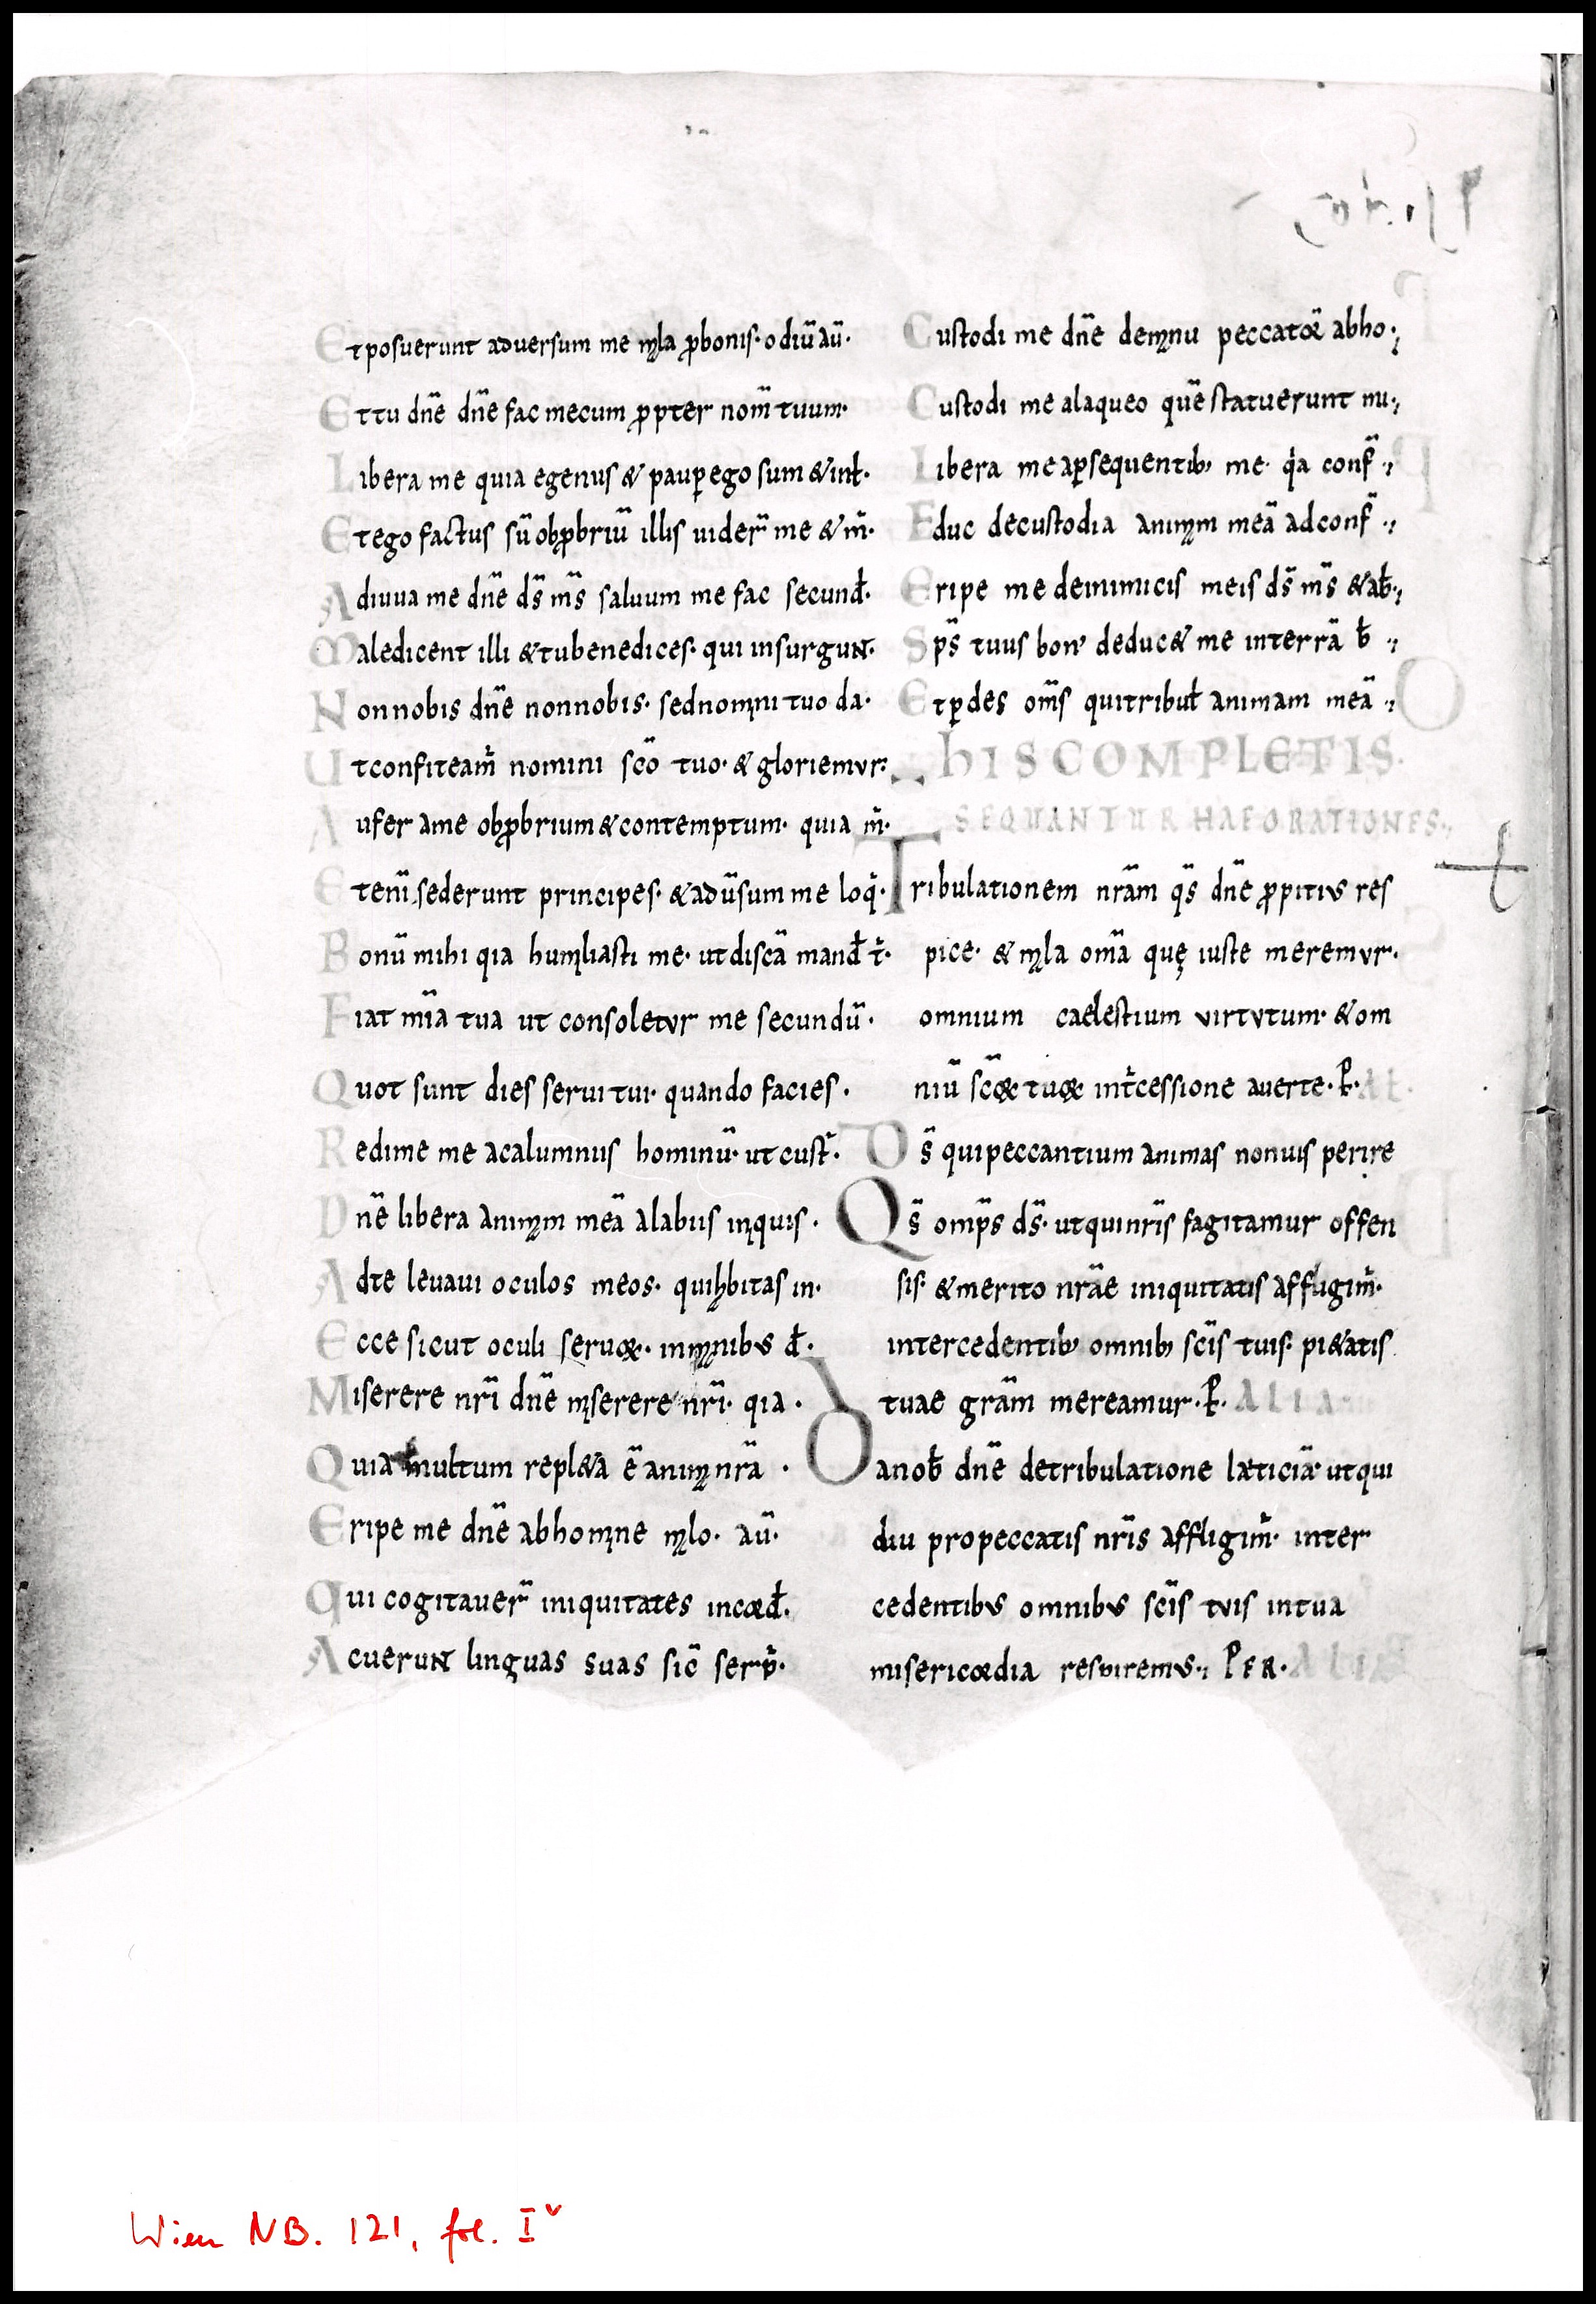 Et posuerunt adversum me mala p̄ bonis· odiū aū·
Et tu dn̄e dn̄e fac mecum ꝓpter nom̄ tuum·
Libera me quia egenus & paup̱ ego sum & int̄·
Et ego factus sū obꝓbriū illis uider̄ me & m̄·
Adiuua me dn̄e ds̄ ms̄ saluum me fac secund̄·
Maledicent illi & tu benedices· qui insurgunt·
Non nobis dn̄e non nobis· sed nomini tuo da·
Ut confiteam̄ nomini sc̄o tuo· & gloriemur·
Aufer a me obꝓbrium & contemptum· quia m̄·
Eteni̅ sederunt principes· & adūsum me loq̄·
Bonū mihi qia humiliasti me· ut discā mand̄ t̄·
Fiat mi̅a tua ut consoletur me secundū·
Quot sunt dies serui tui· quando facies·
Redime me a calumniis hominū· ut cust̄·
Dn̄e libera animam meā a labiis iniquis·
Ad te leuaui oculos meos· qui habitas in·
Ecce sicut oculi seruoꝝ· in manibus d̄·
Miserere nr̄i dn̄e miserere nr̄i· qia·
Quia multum repl&a ē anima nr̄a·
Eripe me dn̄e ab homine malo· aū·
Qui cogitauer̄ iniquitates in cord̄·
Acuerunt linguas suas sic̄ serp̄·
Custodi me dn̄e de manu peccator̄ ab ho·,
Custodi me a laqueo quē statuerunt m·,
Libera me a ꝑsequentib; me· q̇a conf̄·,
Educ de custodia animam meā ad conf̄·,
Eripe me de inimicis meis ds̄ ms̄ & ab·,
Sps̄ tuus bon' deduc& me in terrā b̄·,
Et ꝑdes om̄s qui tribul̄ animam meā·,
HIS COMPLETIS·
SEQUANTUR HAE ORATIONES·,
Tribulationem nr̄am qs̄ dn̄e ꝓpitius res
pice· & mala om̄a quę iuste meremur·
omnium caelestium virtutum· & om
niū sc̄oꝝ tuoꝝ int̄cessione auerte· P̄· AL·
Ds̄ qui peccantium animas non uis perire
Qs̄ omp̄s ds̄· ut qui nr̄is fagitamur offen
sis· & merito nr̄ae iniquitatis affligim̄·
intercedentib; omnib; sc̄is tuis· pi&atis
tuae gr̄am mereamur· P̄· ALIA
Da nob̄ dn̄e de tribulatione lęticiā· ut qui
diu pro peccatis nr̄is affligim̄· inter
cedentibus omnibus sc̄is tuis in tua
misericordia respiremus·, PER· ALIA
Wien NB. 121, fol. Iv